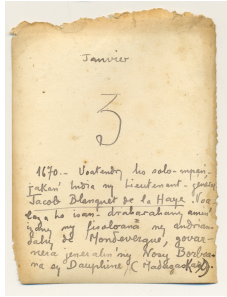 Janvier
3
1670.- Voatendry ho solo-mpan-
jakan' India ny Lieutenant-général
Jacob Blanquet de la Haye. Voa-
ho isan-drabarahany amin'
ny fisoloana ny andrian-
dahy de Mondevergue, gover-
nera jeneralin'ny Nosy Borbo-
na sy Dauphine (Madagaskara)